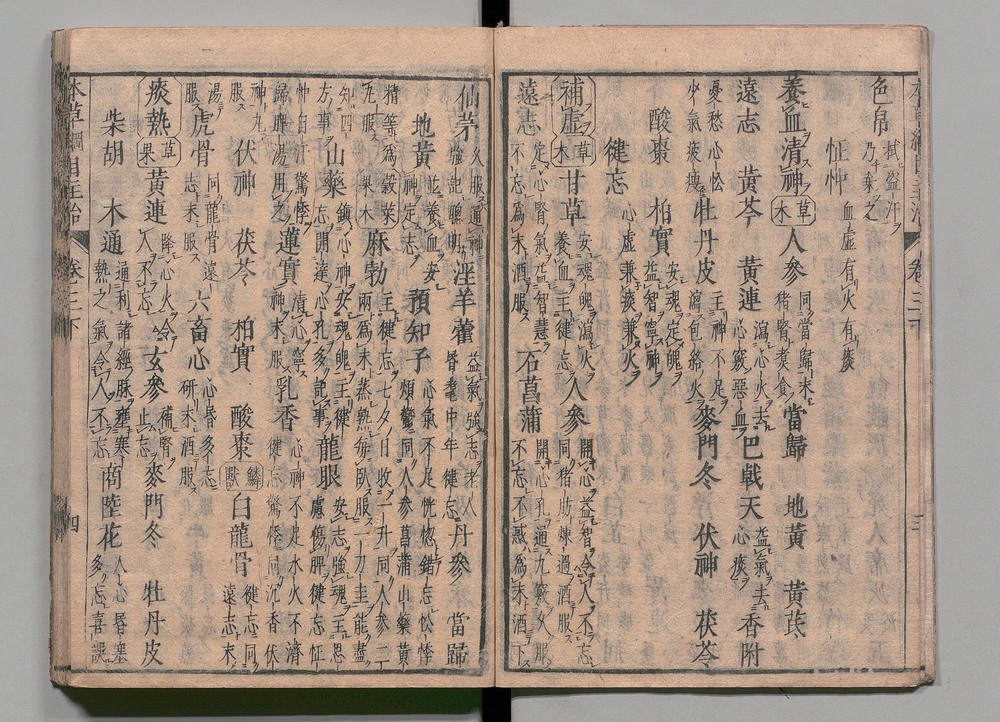 色帛 拭盜汗乃棄之
怔忡 血虛有火有痰
養血清神 草木 人參 同當歸末猪腎煮食 當歸 地黃 黃芪
遠志 黃芩 黃連 瀉心火去心竅惡血 巴戟天 益氣去心痰 香附
憂愁心忪少氣疲瘦 牡丹皮 主神不足瀉包絡火 麥門冬 茯神 茯苓
酸棗 柏實 安魂定魄益智寧神
健忘 心虛兼痰兼火
補虛 草木 甘草 安魂魄瀉火養血主健忘 人參 開心益智令人不忘同猪肪煉過酒服
遠志 定心腎氣益智慧不忘爲末酒服 石菖蒲 開心孔通九竅久服不忘不惑爲末酒下
仙茅 久服通神強記聰明 淫羊藿 益氣強志老人昏耄中年健忘 丹參 當歸
地黃 並養血安神定志 預知子 心氣不足恍惚錯忘忪悸煩鬱同人參菖蒲山藥黃
精等爲丸服 穀菜果木 麻勃 主健忘七夕日收一升同人參二兩爲末蒸熟每臥服一刀圭能盡
知四方事 山藥 鎮心神安魂魄主健忘開達心孔多記事 龍眼 安志強魂主思慮傷脾健忘怔
忡自汗驚悸歸脾湯用之 蓮實 清心寧神末服 乳香 心神不足水火不濟健忘驚悸同沉香茯
神丸服 茯神 茯苓 柏實 酸棗 鱗獸 白龍骨 健忘同遠志末
湯服 虎骨 同龍骨遠志末服 六畜心 心昏多忘研末酒服
痰熱 草果 黃連 降心火令人不忘 玄參 補腎止忘 麥門冬 牡丹皮
柴胡 木通 通利諸經脈壅寒熱之氣令人不忘 商陸花 人心昏塞多忘喜誤
本草綱目主治 卷三下 四